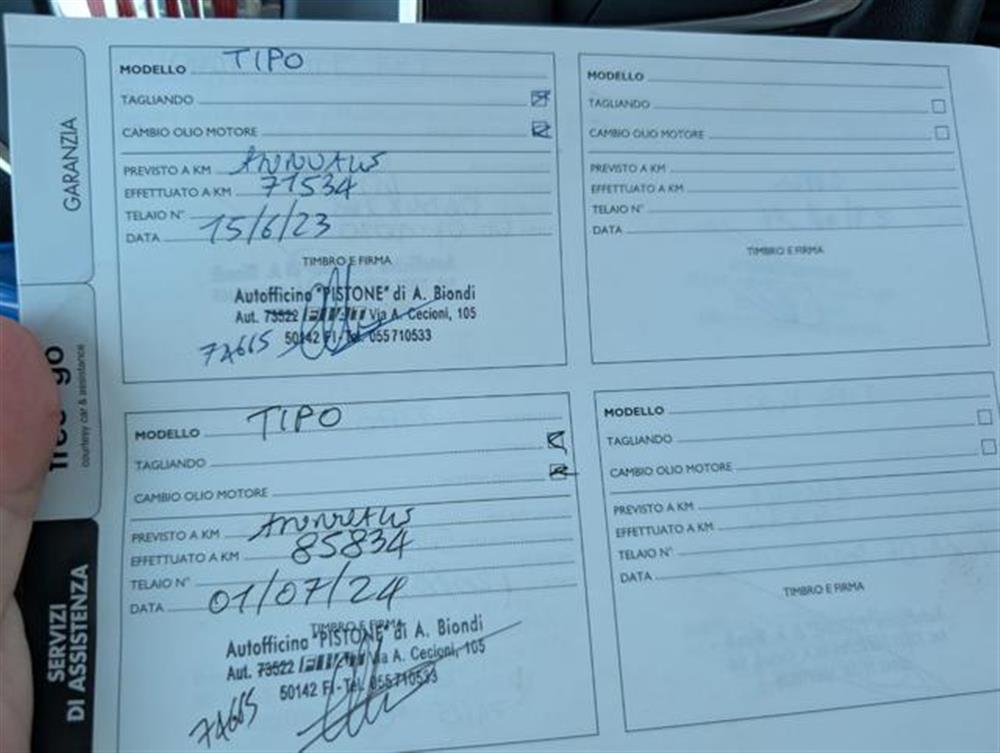 GARANZIA
courtesy car & assistance
SERVIZI
DI ASSISTENZA
MODELLO TIPO
TAGLIANDO
CAMBIO OLIO MOTORE
PREVISTO A KM ANNUALE
EFFETTUATO A KM 71534
TELAIO N°
DATA 15/6/23
TIMBRO E FIRMA
Autofficina "PISTONE" di A. Biondi
Aut. 73522 Via A. Cecioni, 105
50142 FI - Tel. 055710533
74665
MODELLO
TAGLIANDO
CAMBIO OLIO MOTORE
PREVISTO A KM
EFFETTUATO A KM
TELAIO N°
DATA
TIMBRO E FIRMA
MODELLO TIPO
TAGLIANDO
CAMBIO OLIO MOTORE
PREVISTO A KM ANNUALE
EFFETTUATO A KM 85834
TELAIO N°
DATA 01/07/24
TIMBRO E FIRMA
Autofficina "PISTONE" di A. Biondi
Aut. 73522 Via A. Cecioni, 105
50142 FI - Tel. 055710533
74665
MODELLO
TAGLIANDO
CAMBIO OLIO MOTORE
PREVISTO A KM
EFFETTUATO A KM
TELAIO N°
DATA
TIMBRO E FIRMA